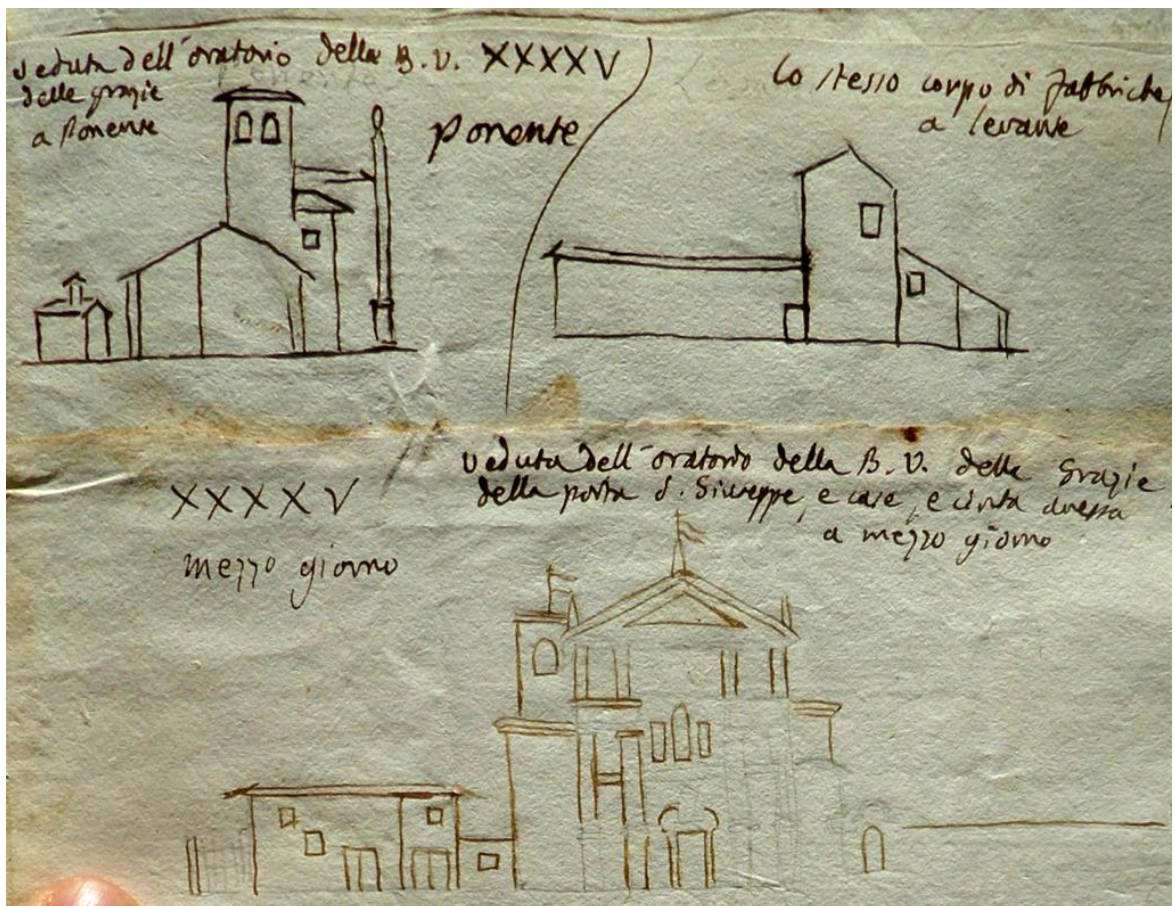 veduta dell'oratorio della B. V. XXXXV
delle grazie
a Ponente
ponente
Lo stesso corpo di fabbriche
a levante
veduta dell'oratorio della B. V. delle Grazie
della porta S. Giuseppe, e case, e cinta annessa
a mezzo giorno
XXXXV
mezzo giorno